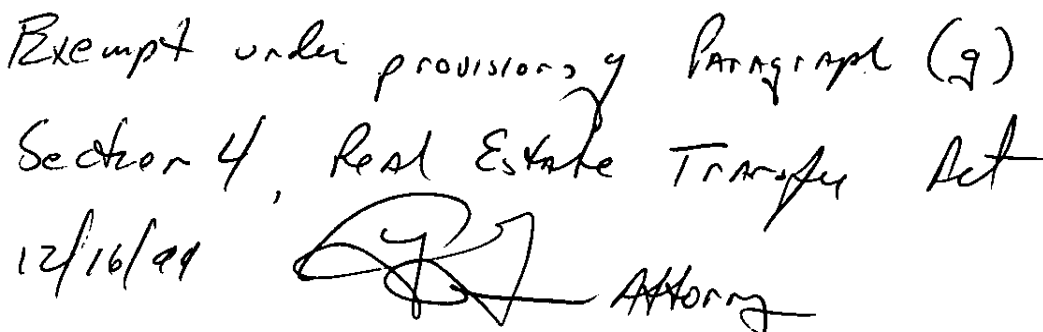 Exempt under provisions of Paragraph (g)
Section 4, Real Estate Transfer Act
12/16/99 Attorney